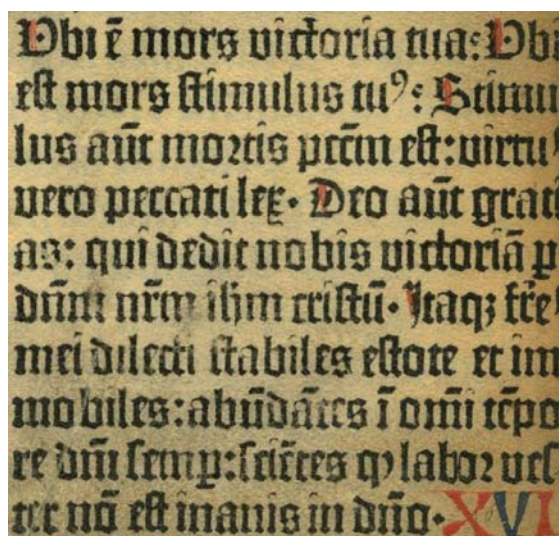 Ubi ē mors victoria tua: Ubi
est mors stimulus tuꝰ: Stimu
lus aūt mortis pctm̄ est: virtuꝰ
vero peccati lex. Deo aūt grati
as: qui dedit nobis victoriā ꝑ
dn̄m nr̄m ihm̄ cristū. Itaqꝫ fr̄e
mei dilecti stabiles estote et im
mobiles: abūdātes ī om̄i tēpo
re dn̄i semꝑ: sciētes ꝙ labor ves
ter nō est inanis in dn̄o. XVI